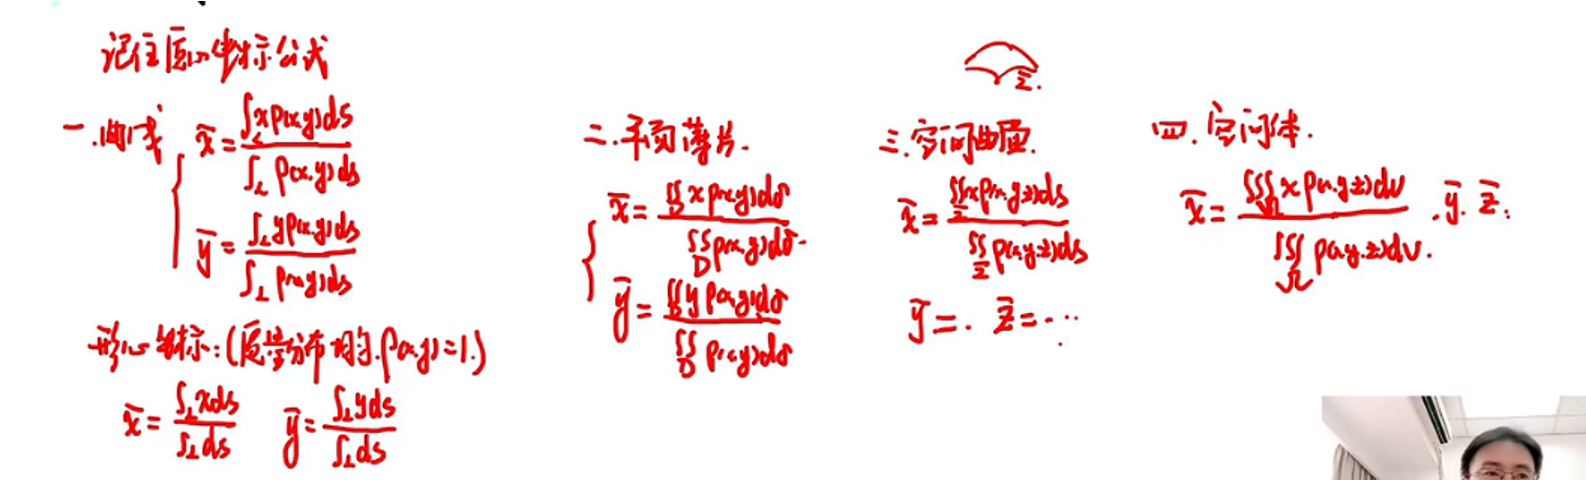 记住质心坐标公式
一.曲线
x̄ = ∫_L xρ(x,y)ds / ∫_L ρ(x,y)ds
ȳ = ∫_L yρ(x,y)ds / ∫_L ρ(x,y)ds
形心坐标:(质量分布均匀.ρ(x,y)=1.)
x̄ = ∫_L xds / ∫_L ds   ȳ = ∫_L yds / ∫_L ds
二.平面薄片.
x̄ = ∬_D xρ(x,y)dσ / ∬_D ρ(x,y)dσ.
ȳ = ∬_D yρ(x,y)dσ / ∬_D ρ(x,y)dσ
Σ.
三.空间曲面.
x̄ = ∬_Σ xρ(x,y,z)ds / ∬_Σ ρ(x,y,z)ds
ȳ=. z̄=...
四.空间体.
x̄ = ∭_Ω xρ(x,y,z)dv / ∭_Ω ρ(x,y,z)dv. .ȳ. z̄.